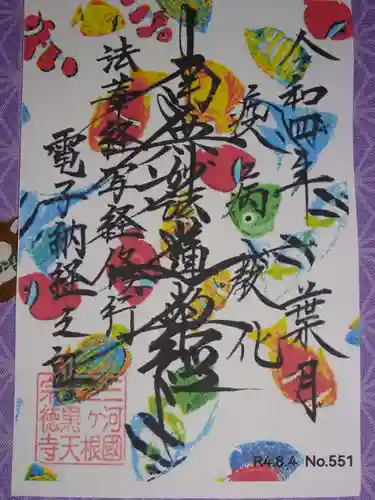 令和四年 葉月
疫病
蔵化
南無妙法蓮華経
法華経写経修行
電子納経之証
三河國
三ヶ根
黒天
宗徳寺
R4.8.4 No.551